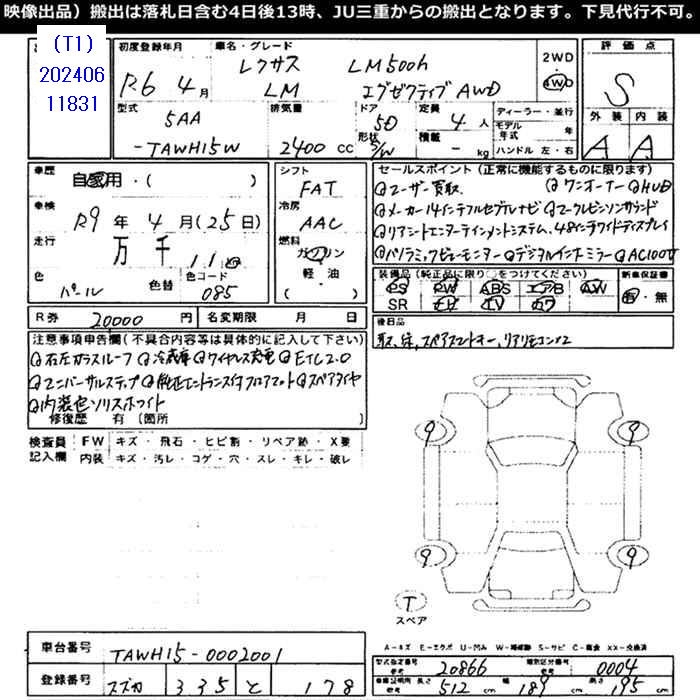 映像出品）搬出は落札日含む4日後13時、JU三重からの搬出となります。下見代行不可。
(T1)
202406
11831
初度登録年月 R6 4月
車名・グレード レクサス LM500h
LM エグゼクティブ AWD
2WD
4WD
評価点 S
外装 A 内装 A
型式 5AA
-TAWH15W
排気量 2400 cc
ドア 5D
形状 S/W
定員 4 人
積載 - kg
ディーラー・並行
モデル年式 年
ハンドル 左・右
車歴 自家用・( )
車検 R9 年 4 月(25日)
走行 万 千 11
色 パール
色替
色コード 085
シフト FAT
冷房 AAC
燃料 ガソリン
軽・油
( )
R券 20000 円
名変期限 月 日
セールスポイント (正常に機能するものに限ります)
ユーザー買取 ワンオーナー HUD
メーカー14インテフルセグTVナビ マークレビンソンサウンド
リアシートエンターテインメントシステム、48インテワイドディスプレイ
パノラミックビューモニター デジタルインナーミラー AC100V
装備品 (純正品に限り○をつけてください)
PS PW ABS エアB AW
SR
新車保証書
有・無
後日品
取、保、スペアスマートキー、リアリモコン×2
注意事項申告欄 (不具合内容等は具体的に記入して下さい)
右左ガラスルーフ 冷蔵庫 ワイヤレス充電 ETC2.0
ユニバーサルステップ 純正エントランスイヤフロアマット スペアタイヤ
内装色ソリスホワイト
修復歴 有 (箇所 )
検査員記入欄
FW キズ・飛石・ヒビ割・リペア跡・X要
内装 キズ・汚レ・コゲ・穴・スレ・キレ・破レ
9 9
9 9
T
スペア
A-キズ E-エクボ U-凹み W-補修跡 S-サビ C-腐食 XX-交換済
車台番号 TAWH15-0002001
登録番号 スズカ 335 と 178
型式指定番号 20866 類別区分番号 0004
車検証明用 長さ 512 cm 幅 189 cm 高さ 195 cm